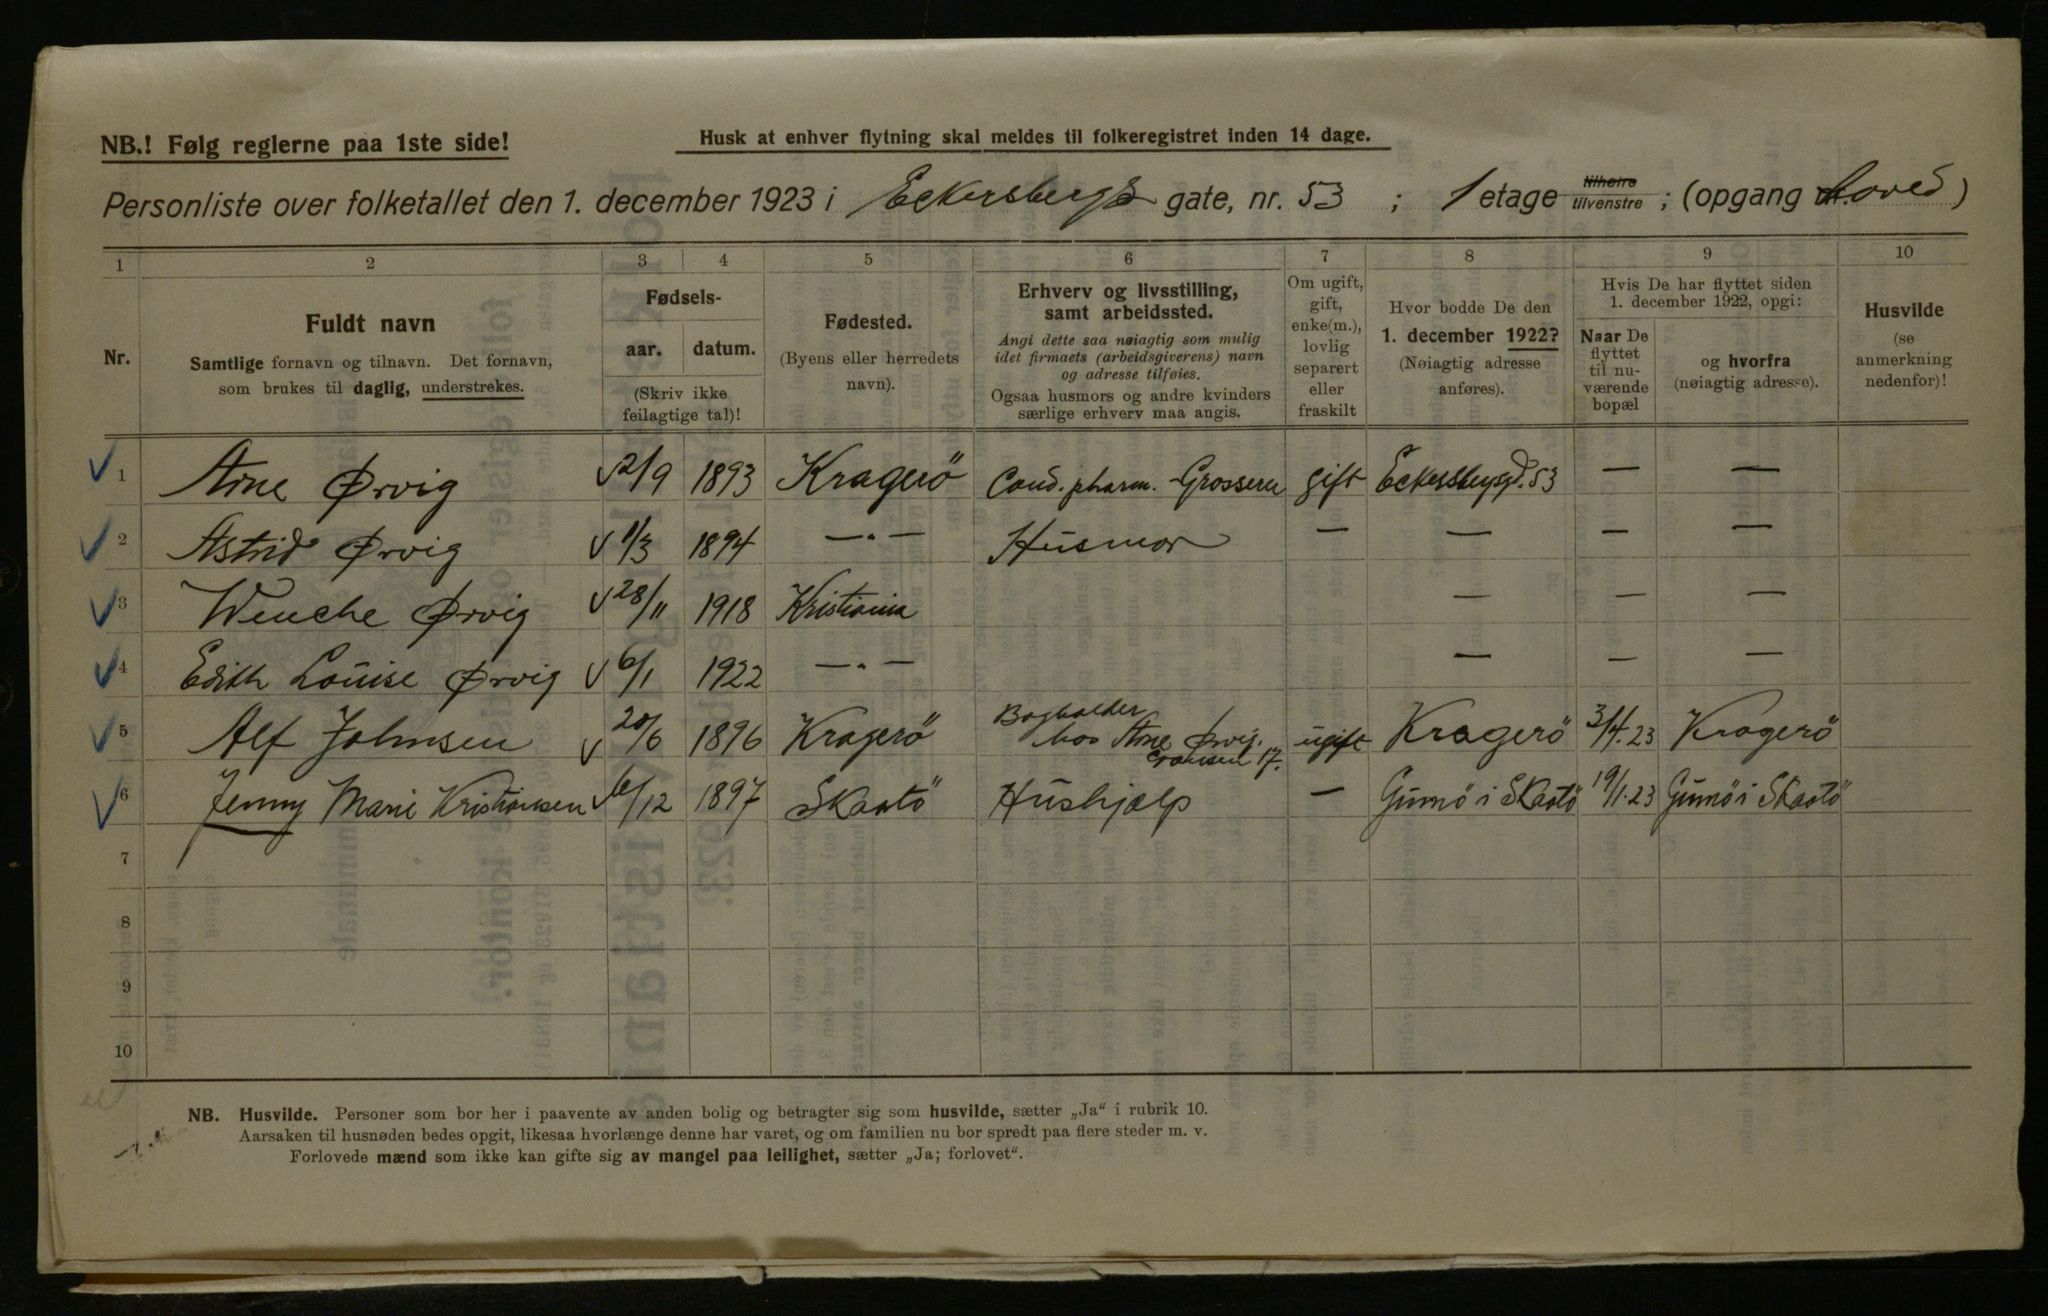 NB.! Følg reglerne paa 1ste side!
Husk at enhver flytning skal meldes til folkeregistret inden 14 dage.
Personliste over folketallet den 1. december 1923 i Eckersbergs gate, nr. 53 ; 1 etage tilhøire tilvenstre ; (opgang Hoved)
1 2 3 4 5 6 7 8 9 10
Nr.
Fuldt navn
Samtlige fornavn og tilnavn. Det fornavn,
som brukes til daglig, understrekes.
Fødsels-
aar. datum.
(Skriv ikke
feilagtige tal)!
Fødested.
(Byens eller herredets
navn).
Erhverv og livsstilling,
samt arbeidssted.
Angi dette saa nøiagtig som mulig
idet firmaets (arbeidsgiverens) navn
og adresse tilføies.
Ogsaa husmors og andre kvinders
særlige erhverv maa angis.
Om ugift,
gift,
enke(m.),
lovlig
separert
eller
fraskilt
Hvor bodde De den
1. december 1922?
(Nøiagtig adresse
anføres).
Hvis De har flyttet siden
1. december 1922, opgi:
Naar De
flyttet
til nu-
værende
bopæl
og hvorfra
(nøiagtig adresse).
Husvilde
(se
anmerkning
nedenfor)!
1 Arne Ørvig 2/9 1893 Kragerö Cand. pharm. - Grosserer gift Eckersbergsgd. 53 — —
2 Astrid Ørvig 11/3 1894 —"— Husmor — — — —
3 Wenche Ørvig 28/11 1918 Kristiania — — —
4 Edith Louise Ørvig 6/1 1922 —"— — — —
5 Alf Johnsen 20/6 1896 Kragerö Bogholder
hos Arne Ørvig. 17. ugift Kragerö 3/4.23 Kragerö
6 Jenny Marie Kristiansen 6/12 1897 Skaatö Hushjælp — Gumö i Skaatö 19/1.23 Gumö i Skaatö
7
8
9
10
NB. Husvilde. Personer som bor her i paavente av anden bolig og betragter sig som husvilde, sætter „Ja“ i rubrik 10.
Aarsaken til husnøden bedes opgit, likesaa hvorlænge denne har varet, og om familien nu bor spredt paa flere steder m. v.
Forlovede mænd som ikke kan gifte sig av mangel paa leilighet, sætter „Ja; forlovet“.